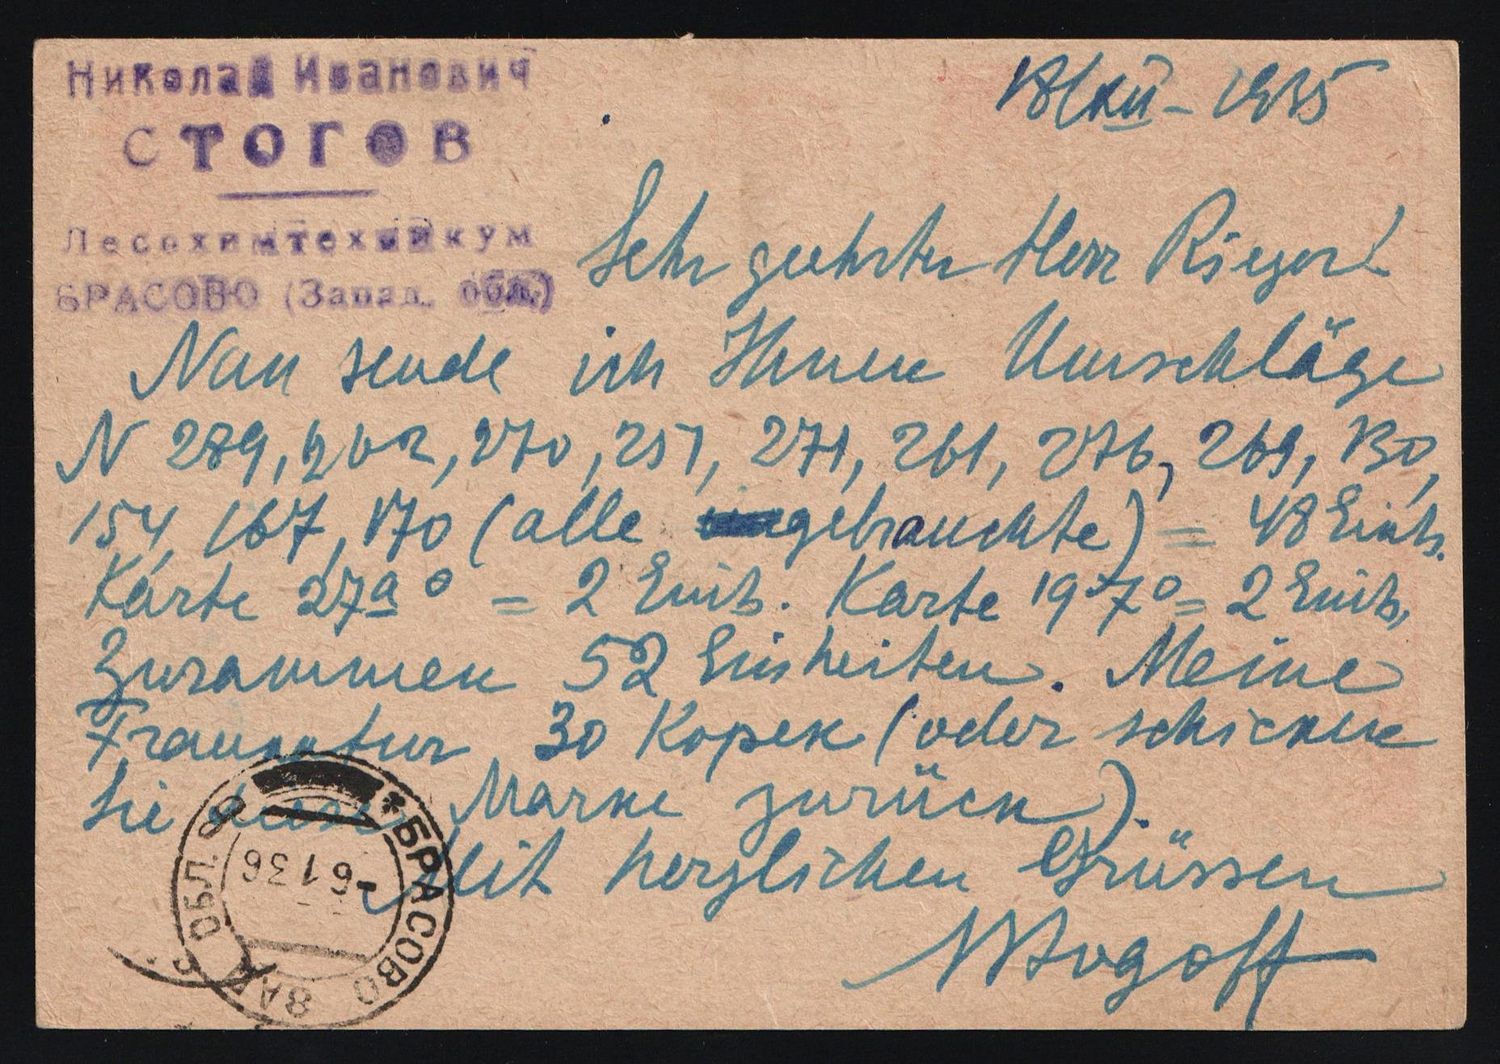 Николай Иванович
СТОГОВ
Лесохимтехникум
БРАСОВО (Запад. обл.)
18/XII – 1935
Sehr geehrter Herr Rieger!
Nun sende ich Ihnen Umschläge
N 289, 202, 270, 257, 271, 261, 276, 269, 130,
154, 167, 170 (alle gebrauchte) = 48 Einh.
Karte 27ª ° = 2 Einh. Karte 197° = 2 Einh.
Zusammen 52 Einheiten. Meine
Frankatur 30 Kopek (oder schicken
Sie Marke zurück).
Mit herzlichen Grüssen
NStogoff
* БРАСОВО ЗАП. ОБЛ.
-6 1 36